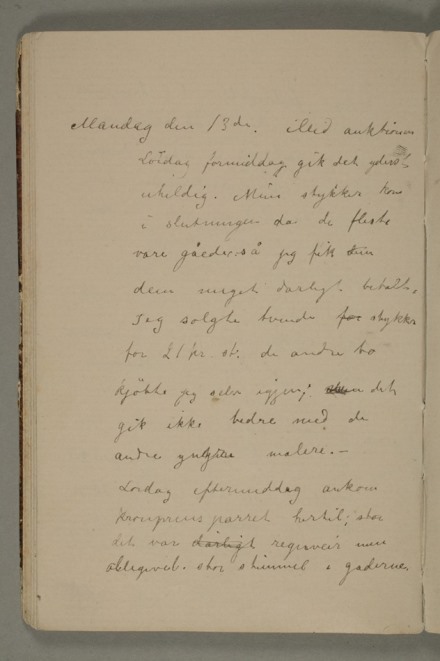 Mandag den 13de. Med auktionen
Lördag formiddag gik det yderst
uheldig. Mine stykker kom
i slutningen da de fleste
vare gåede, så jeg fik
dem meget dårligt betalt.
Jeg solgte tvende stykker
for 21 kr. st. de andre to
kjöbte jeg selv igjen; det
gik ikke bedre med de
andre yngre malere. –
Lördag eftermiddag ankom
Kronprinsparret hertil; stor
det var dårligt regnveir men
alligevel stor stimmel i gaderne